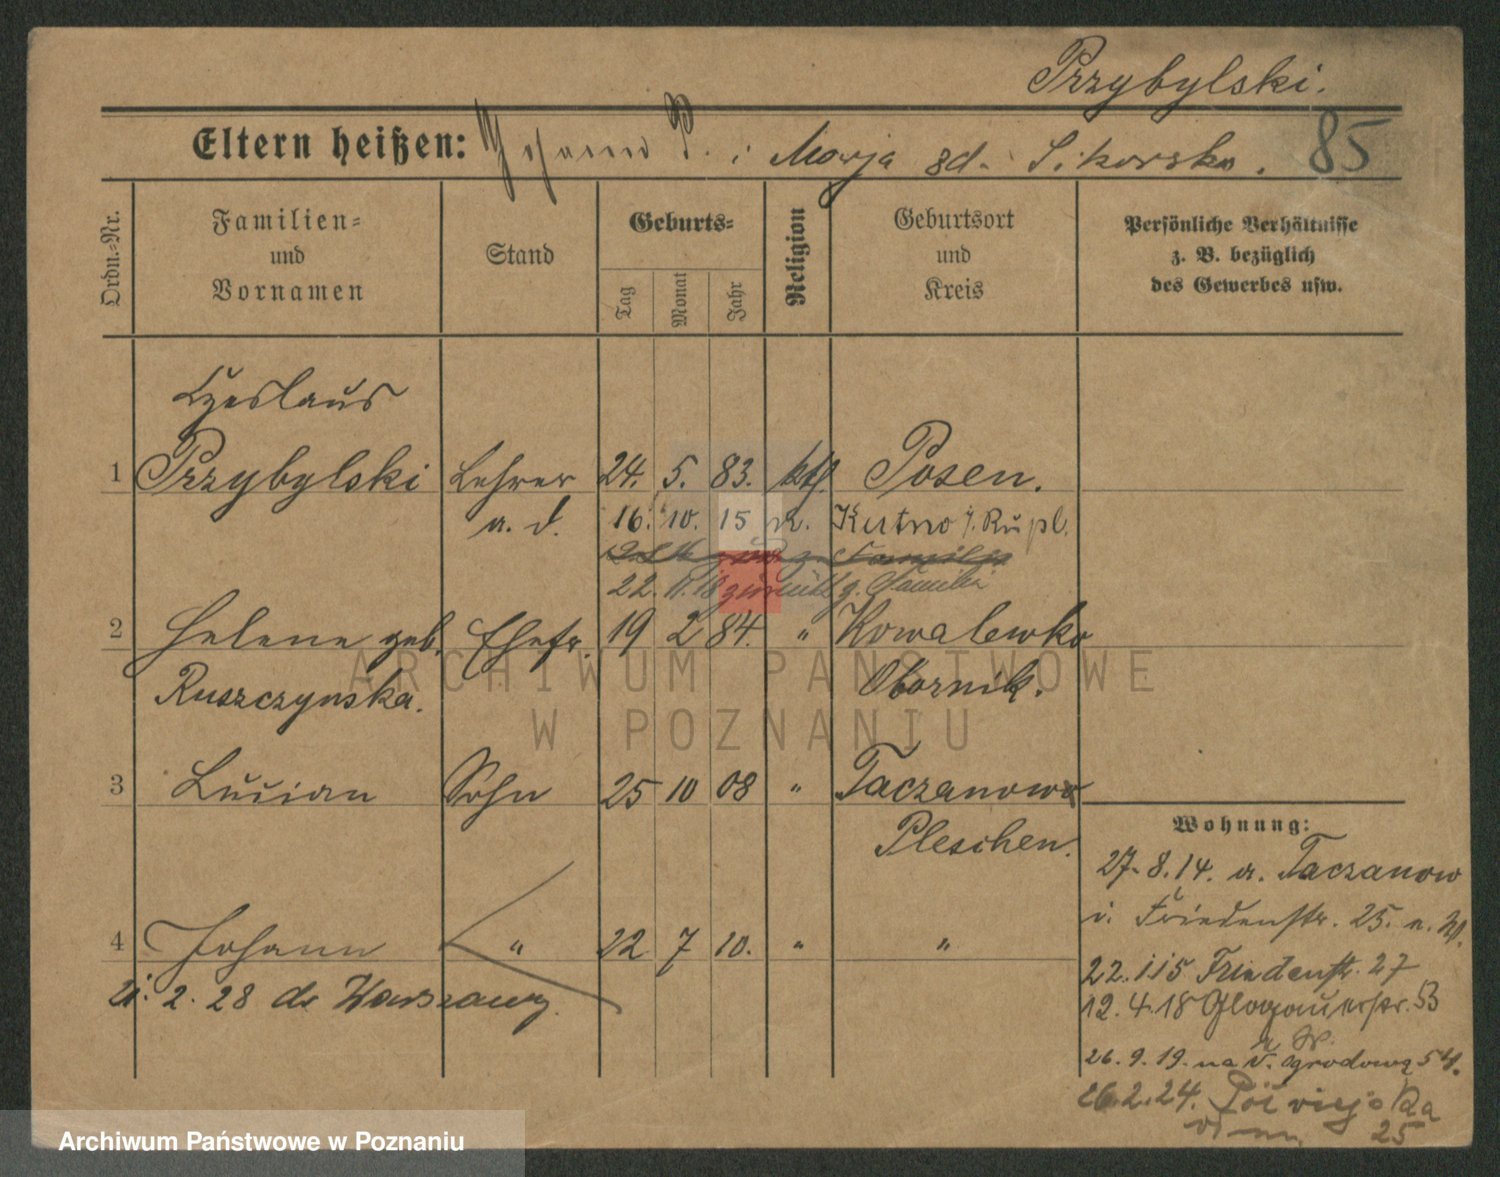 Przybylski.
85
Eltern heißen: Johann P. i Marja zd. Sikorska.
Ordn.-Nr.
Familien-
und
Vornamen
Stand
Geburts-
Tag
Monat
Jahr
Religion
Geburtsort
und
Kreis
Persönliche Verhältnisse
z. B. bezüglich
des Gewerbes usw.
Czeslaus
1 Przybylski Lehrer 24. 5. 83. kth. Posen.
a. d. 16. 10. 15 n. Kutno
22. 11. 18 zurück z. Familie
2 Helene geb. Ehefr. 19 2 84. " Kowalewko
Ruszczynska. Obornik.
3 Luzian Sohn 25 10 08 " Taczanowo
Pleschen.
4 Johann " 22 7 10. " "
21. 2. 28 do Warszawy.
Wohnung:
27. 8. 14. a. Taczanow
Friedenstr. 25.
22. 1 15 Friedenstr. 27
12. 4. 18 Glogauerstr. 53
26. 9. 19. na Ogrodową 54.
26. 2. 24. Półwiejska
25
ARCHIWUM PAŃSTWOWE
W POZNANIU
Archiwum Państwowe w Poznaniu